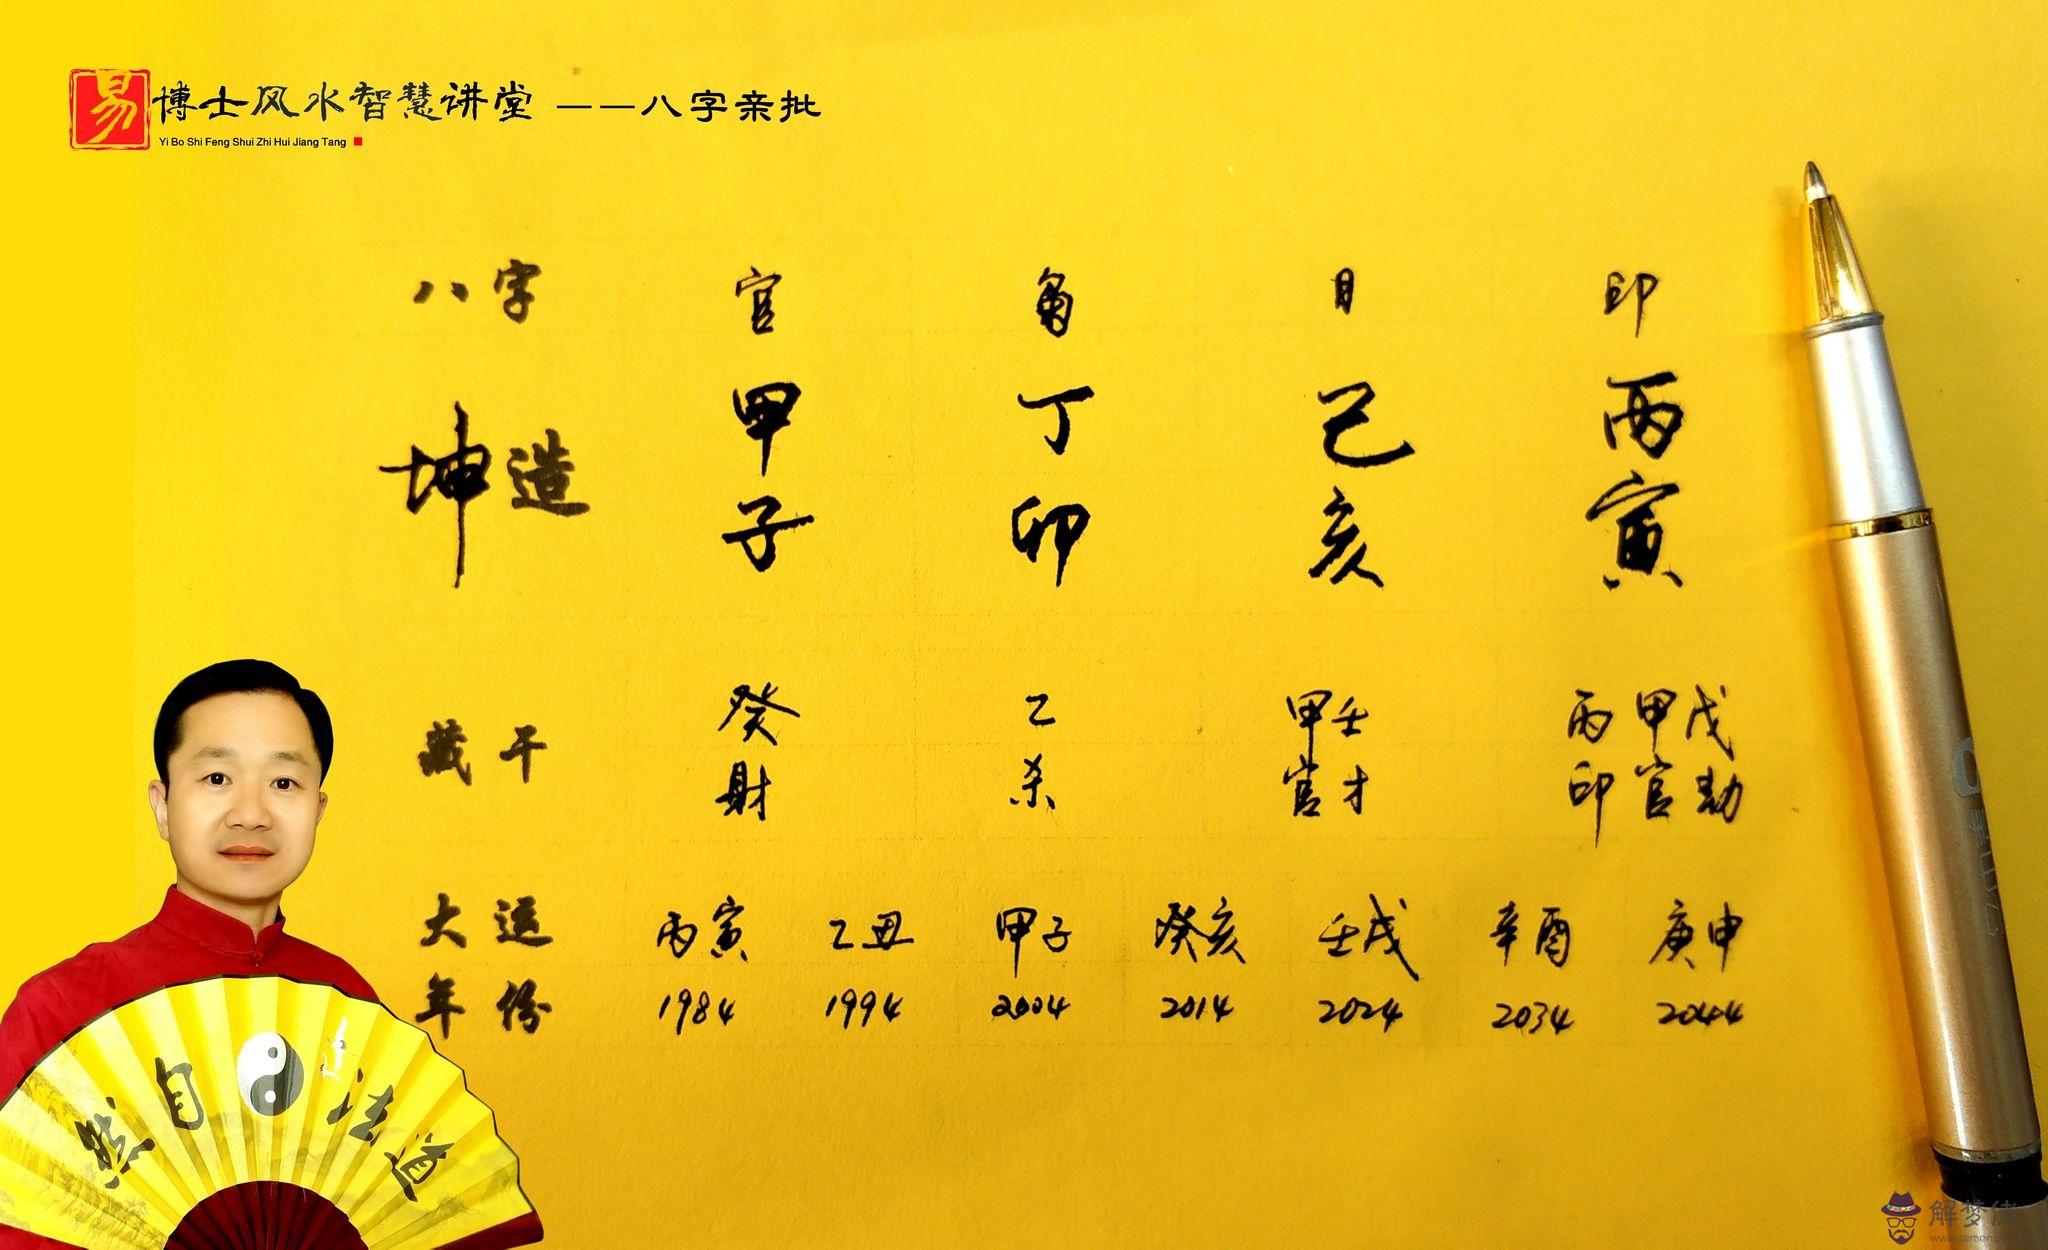 易 博士风水智慧讲堂 ——八字亲批
Yi Bo Shi Feng Shui Zhi Hui Jiang Tang
八字 官 枭 日 印
坤造 甲 丁 己 丙
子 卯 亥 寅
藏干 癸 乙 甲壬 丙甲戊
財 杀 官才 印官劫
大运 丙寅 乙丑 甲子 癸亥 壬戌 辛酉 庚申
年份 1984 1994 2004 2014 2024 2034 2044
然自法道
解梦佬